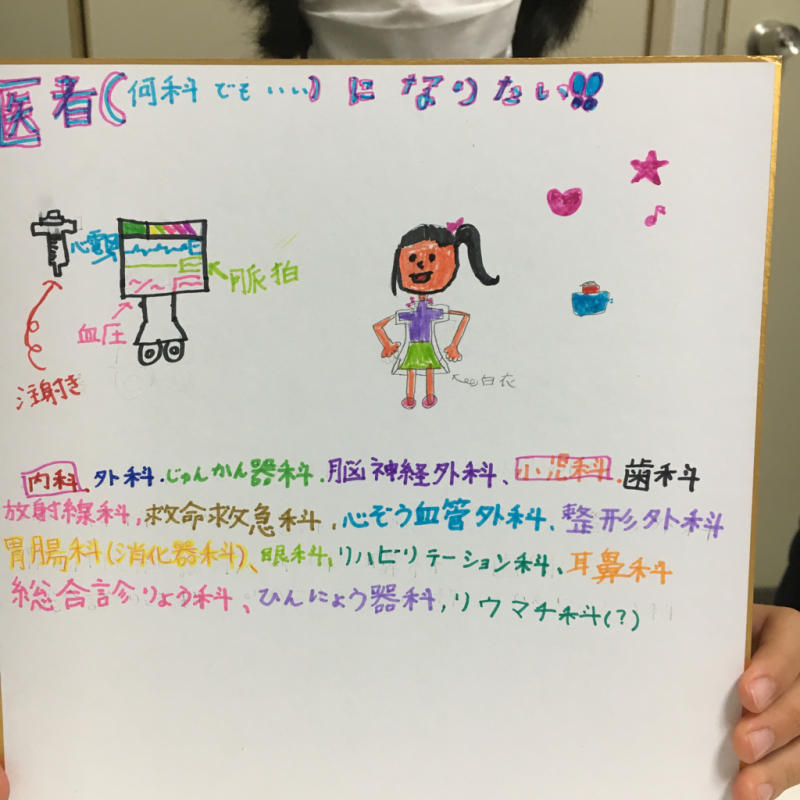 医者(何科でもいい)になりたい!!
心電図
脈拍
血圧
注射き
白衣
内科.外科.じゅんかん器科.脳神経外科、小児科.歯科
放射線科,救命救急科,心ぞう血管外科、整形外科
胃腸科(消化器科)、眼科,リハビリテーション科、耳鼻科
総合診りょう科、ひんにょう器科,リウマチ科(?)